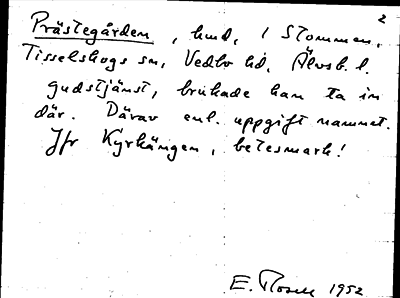 2
Prästegården, hmd, 1 Stommen,
Tisselskogs sn, Vedbo hd, Älvsb. l.
gudstjänst, brukade han ta in
där. Därav enl. uppgift namnet.
Jfr Kyrkängen, betesmark!
E. Rosell 1952